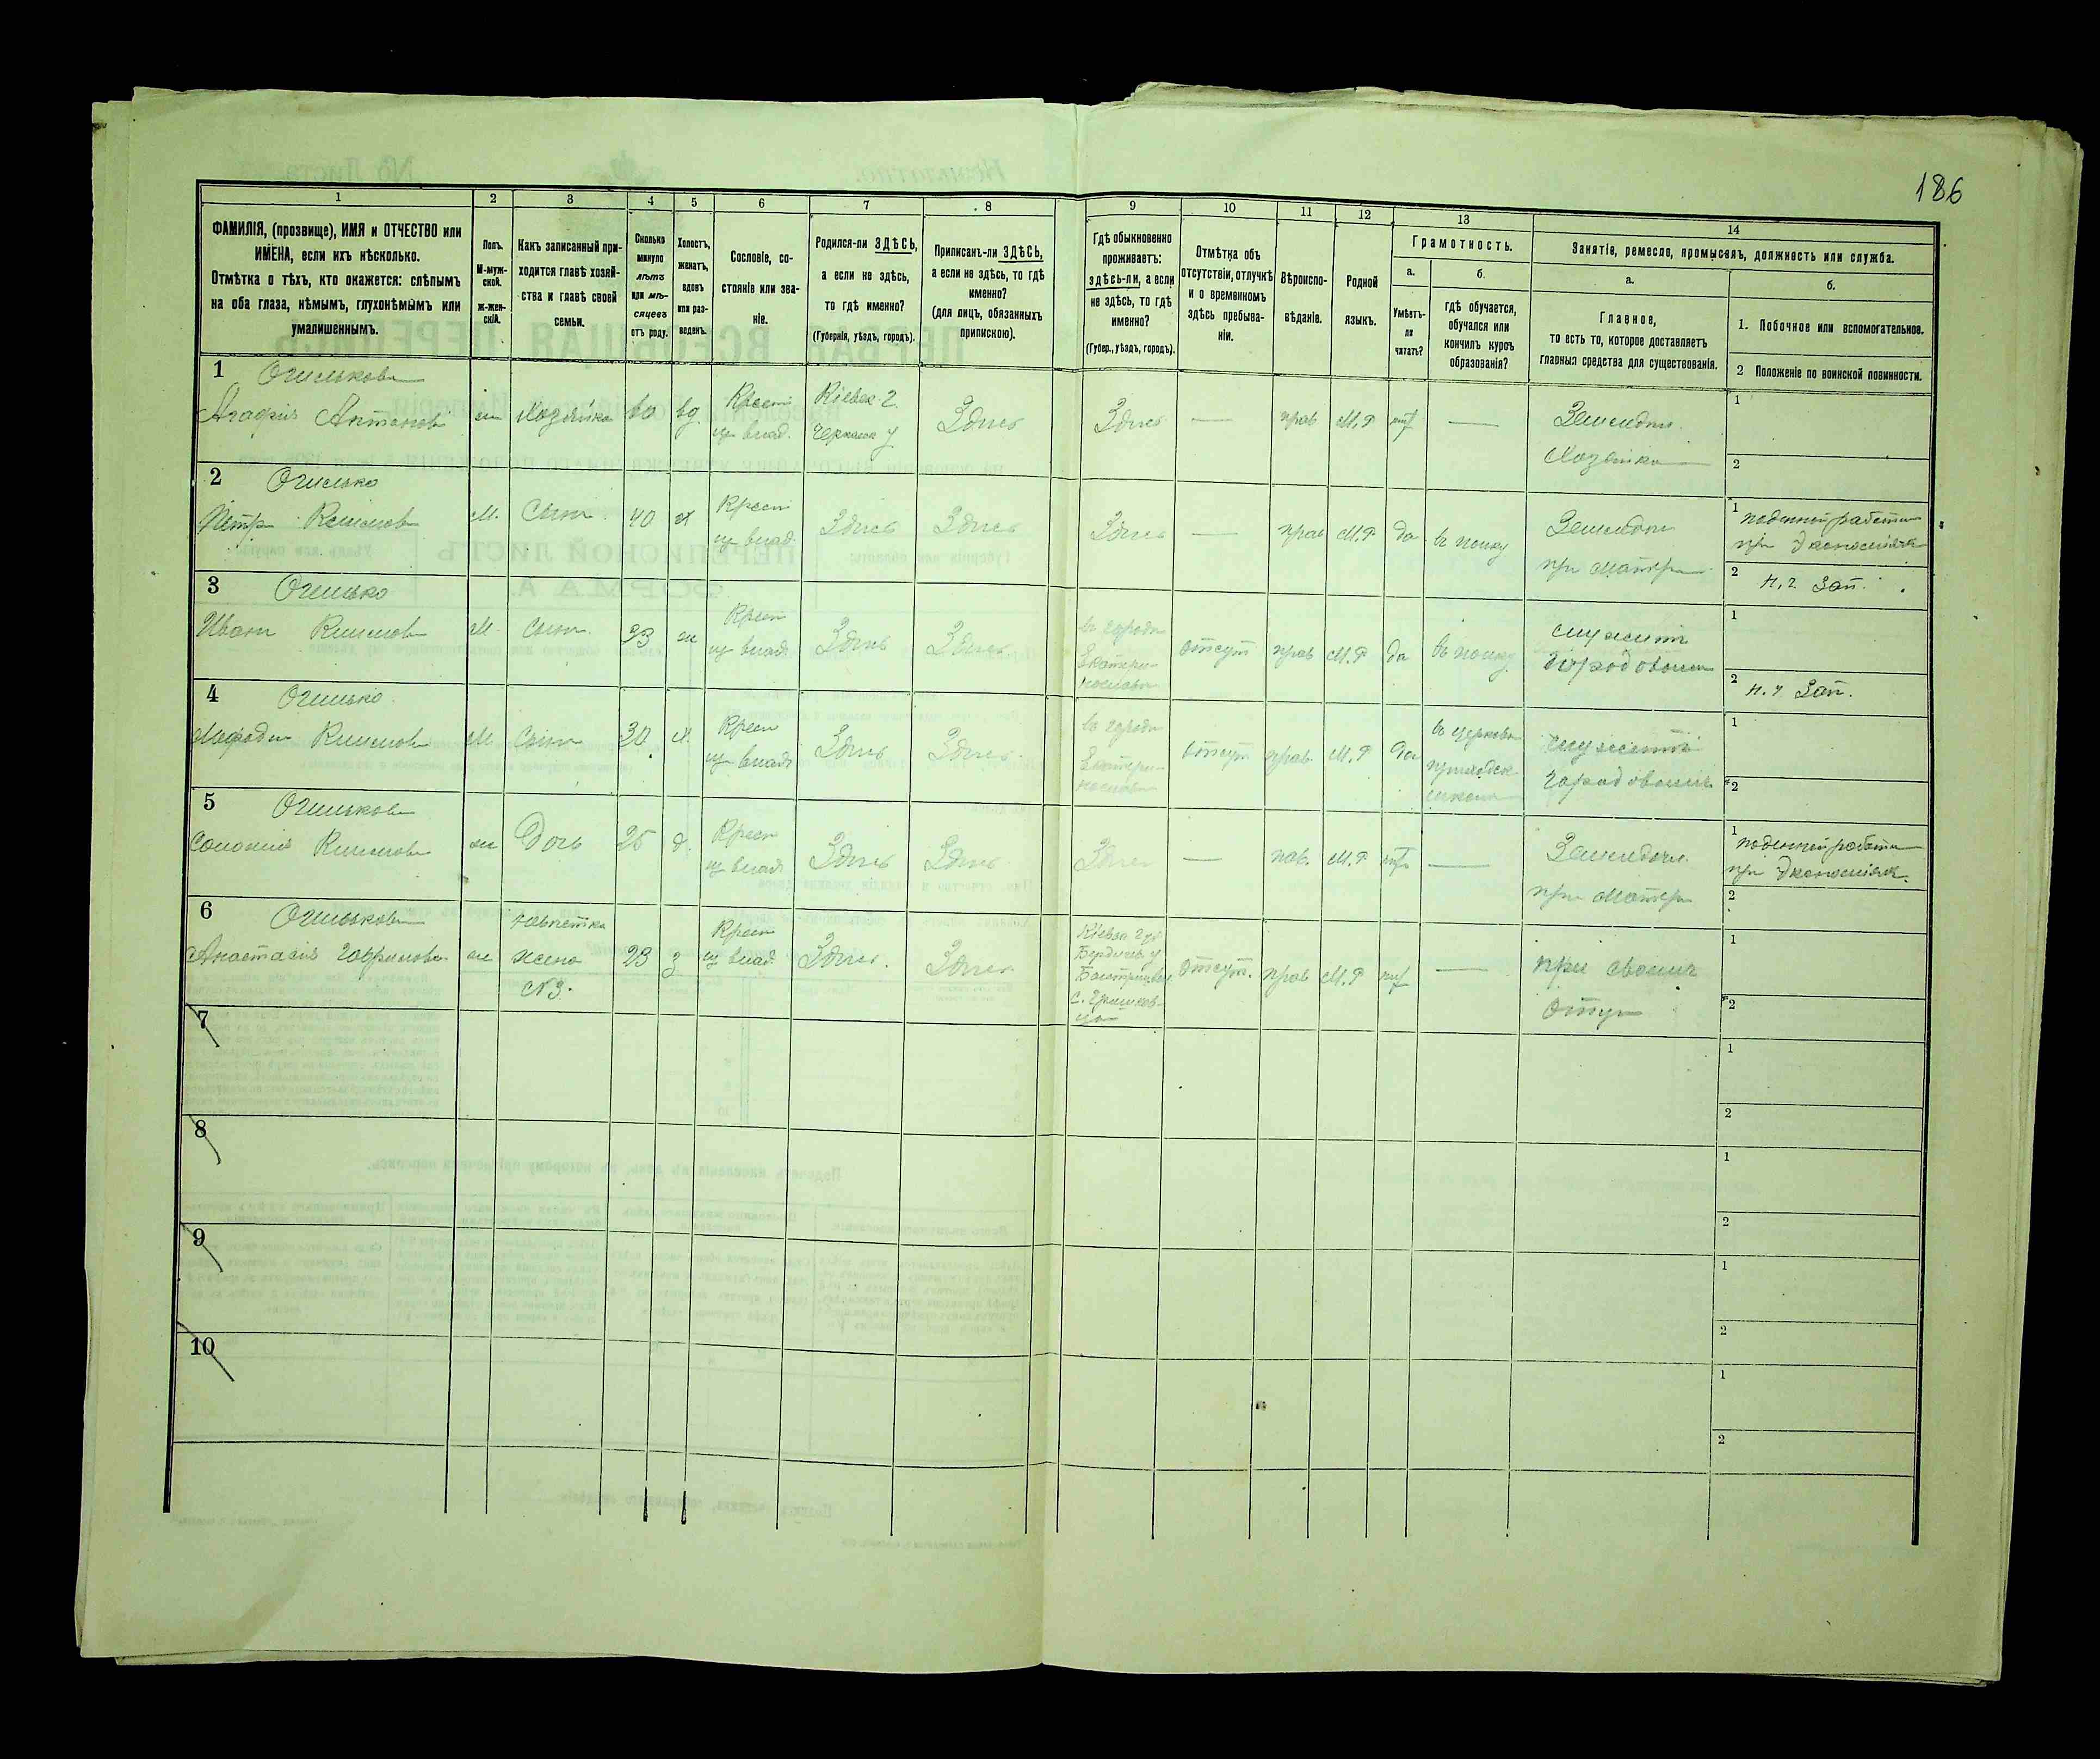 186
1
2
3
4
5
6
7
8
9
10
11
12
13
14
ФАМИЛІЯ, (прозвище), ИМЯ и ОТЧЕСТВО или
ИМЕНА, если ихъ нѣсколько.
Отмѣтка о тѣхъ, кто окажется: слѣпымъ
на оба глаза, нѣмымъ, глухонѣмымъ или
умалишеннымъ.
Полъ.
М-муж-
ской.
ж-жен-
скій.
Какъ записанный при-
ходится главѣ хозяй-
ства и главѣ своей
семьи.
Сколько
минуло
лѣтъ
или мѣ-
сяцевъ
отъ роду.
Холостъ,
женатъ,
вдовъ
или раз-
веденъ.
Сословіе, со-
стояніе или зва-
ніе.
Родился-ли ЗДѢСЬ,
а если не здѣсь,
то гдѣ именно?
(Губернія, уѣздъ, городъ).
Приписанъ-ли ЗДѢСЬ,
а если не здѣсь, то гдѣ
именно?
(для лицъ, обязанныхъ
припискою).
Гдѣ обыкновенно
проживаетъ:
здѣсь-ли, а если
не здѣсь, то гдѣ
именно?
(Губер., уѣздъ, городъ).
Отмѣтка объ
отсутствіи, отлучкѣ
и о временномъ
здѣсь пребыва-
ніи.
Вѣроиспо-
вѣданіе.
Родной
языкъ.
Грамотность.
а.
Умѣетъ-
ли
читать?
б.
гдѣ обучается,
обучался или
кончилъ курсъ
образованія?
Занятіе, ремесло, промыселъ, должность или служба.
а.
Главное,
то есть то, которое доставляетъ
главныя средства для существованія.
б.
1. Побочное или вспомогательное.
2 Положеніе по воинской повинности.
1 Огиькова
Агафія Антонов
ж Хозяйка 60 вд.
Крест
из влад.
Кіевск. г.
Черкасск у
Здѣсь
Здѣсь — прав М.Р нѣт —
Земледѣл.
Хозяйка
1
2
2 Огилько
Петр Климов
М. Сын. 40 х
Крест
из влад.
Здѣсь Здѣсь
Здѣсь — прав М.Р да в полку
Земледѣл
при матери
1 поденный работн
при Экономіях
2 н. ч Зап.
3 Огилько
Иван Климов
М. сын. 33 ж
Крест
из влад.
Здѣсь Здѣсь
въ городѣ
Екатери-
нославѣ
отсут прав М.Р да в полку
служит
городовым
1
2 н. ч Зап.
4 Огилько
Климов
М Сын 30 х.
Крест
из влад.
Здѣсь Здѣсь.
въ городѣ
Екатери-
нославѣ
отсут прав. М.Р да
в церковн
приходск
школѣ
служит
городовым
1
2
5
Климов
ж Дочь 25 д.
Крест
из влад
Здѣсь Здѣсь
Здѣсь — М.Р нѣт —
Земледѣл.
при матери
1 поденный работн
при Экономіях.
2
6
Анастасія
ж
невѣстка
жена
№3.
23 з
Крест
из влад
Здѣсь. Здѣсь
Кіевск губ
Бердичев у
отсут. прав М.Р нѣт —
при своем
отцѣ
1
2
7
1
2
8
1
2
9
1
2
10
1
2